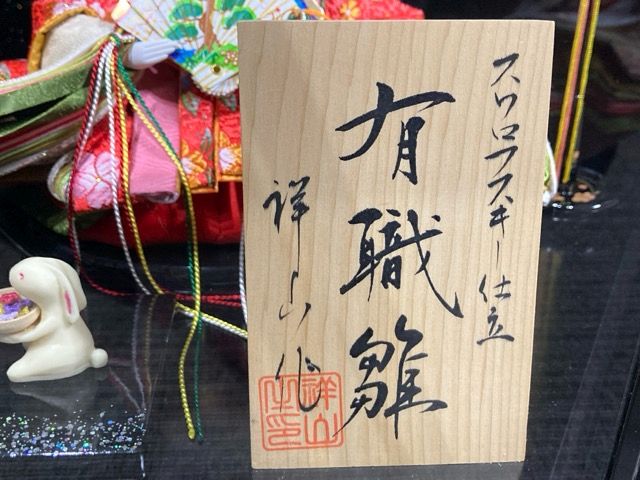 スワロフスキー仕立
有職雛
祥山作
祥山之印